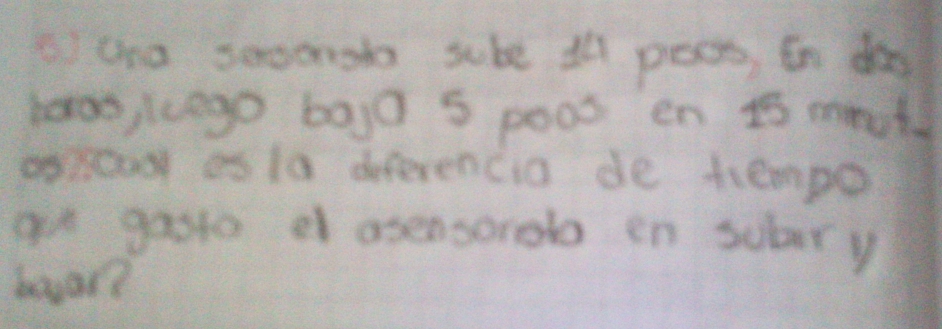 Una sube 14 pisos, En dos
horas, luego baja 5 pisos en 15 minut-
os ¿Cual es la diferencia de tiempo
que gasto el asensorista en subir y
bajar?